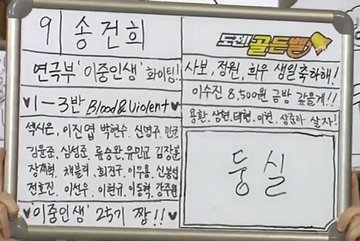 9 송건희
연극부 '이중인생' 화이팅!
♥1-3반 Blood&Violent♥
석시은, 이진엽 박현수, 신명주
김윤준, 심성준, 윤승환, 유민교 김강훈
장재혁, 채블리, 최진구, 이우용, 신봉섭
전호진, 이선우, 이현규, 이동혁, 강주원
♥'이중인생' 25기 짱!!♥
도전! 골든벨
사보, 정원, 희우 생일축하해!
이수진 8,500원 금방 갚을게!!
용환, 상현, 태현, 이천, 상준아 살자!
둥실